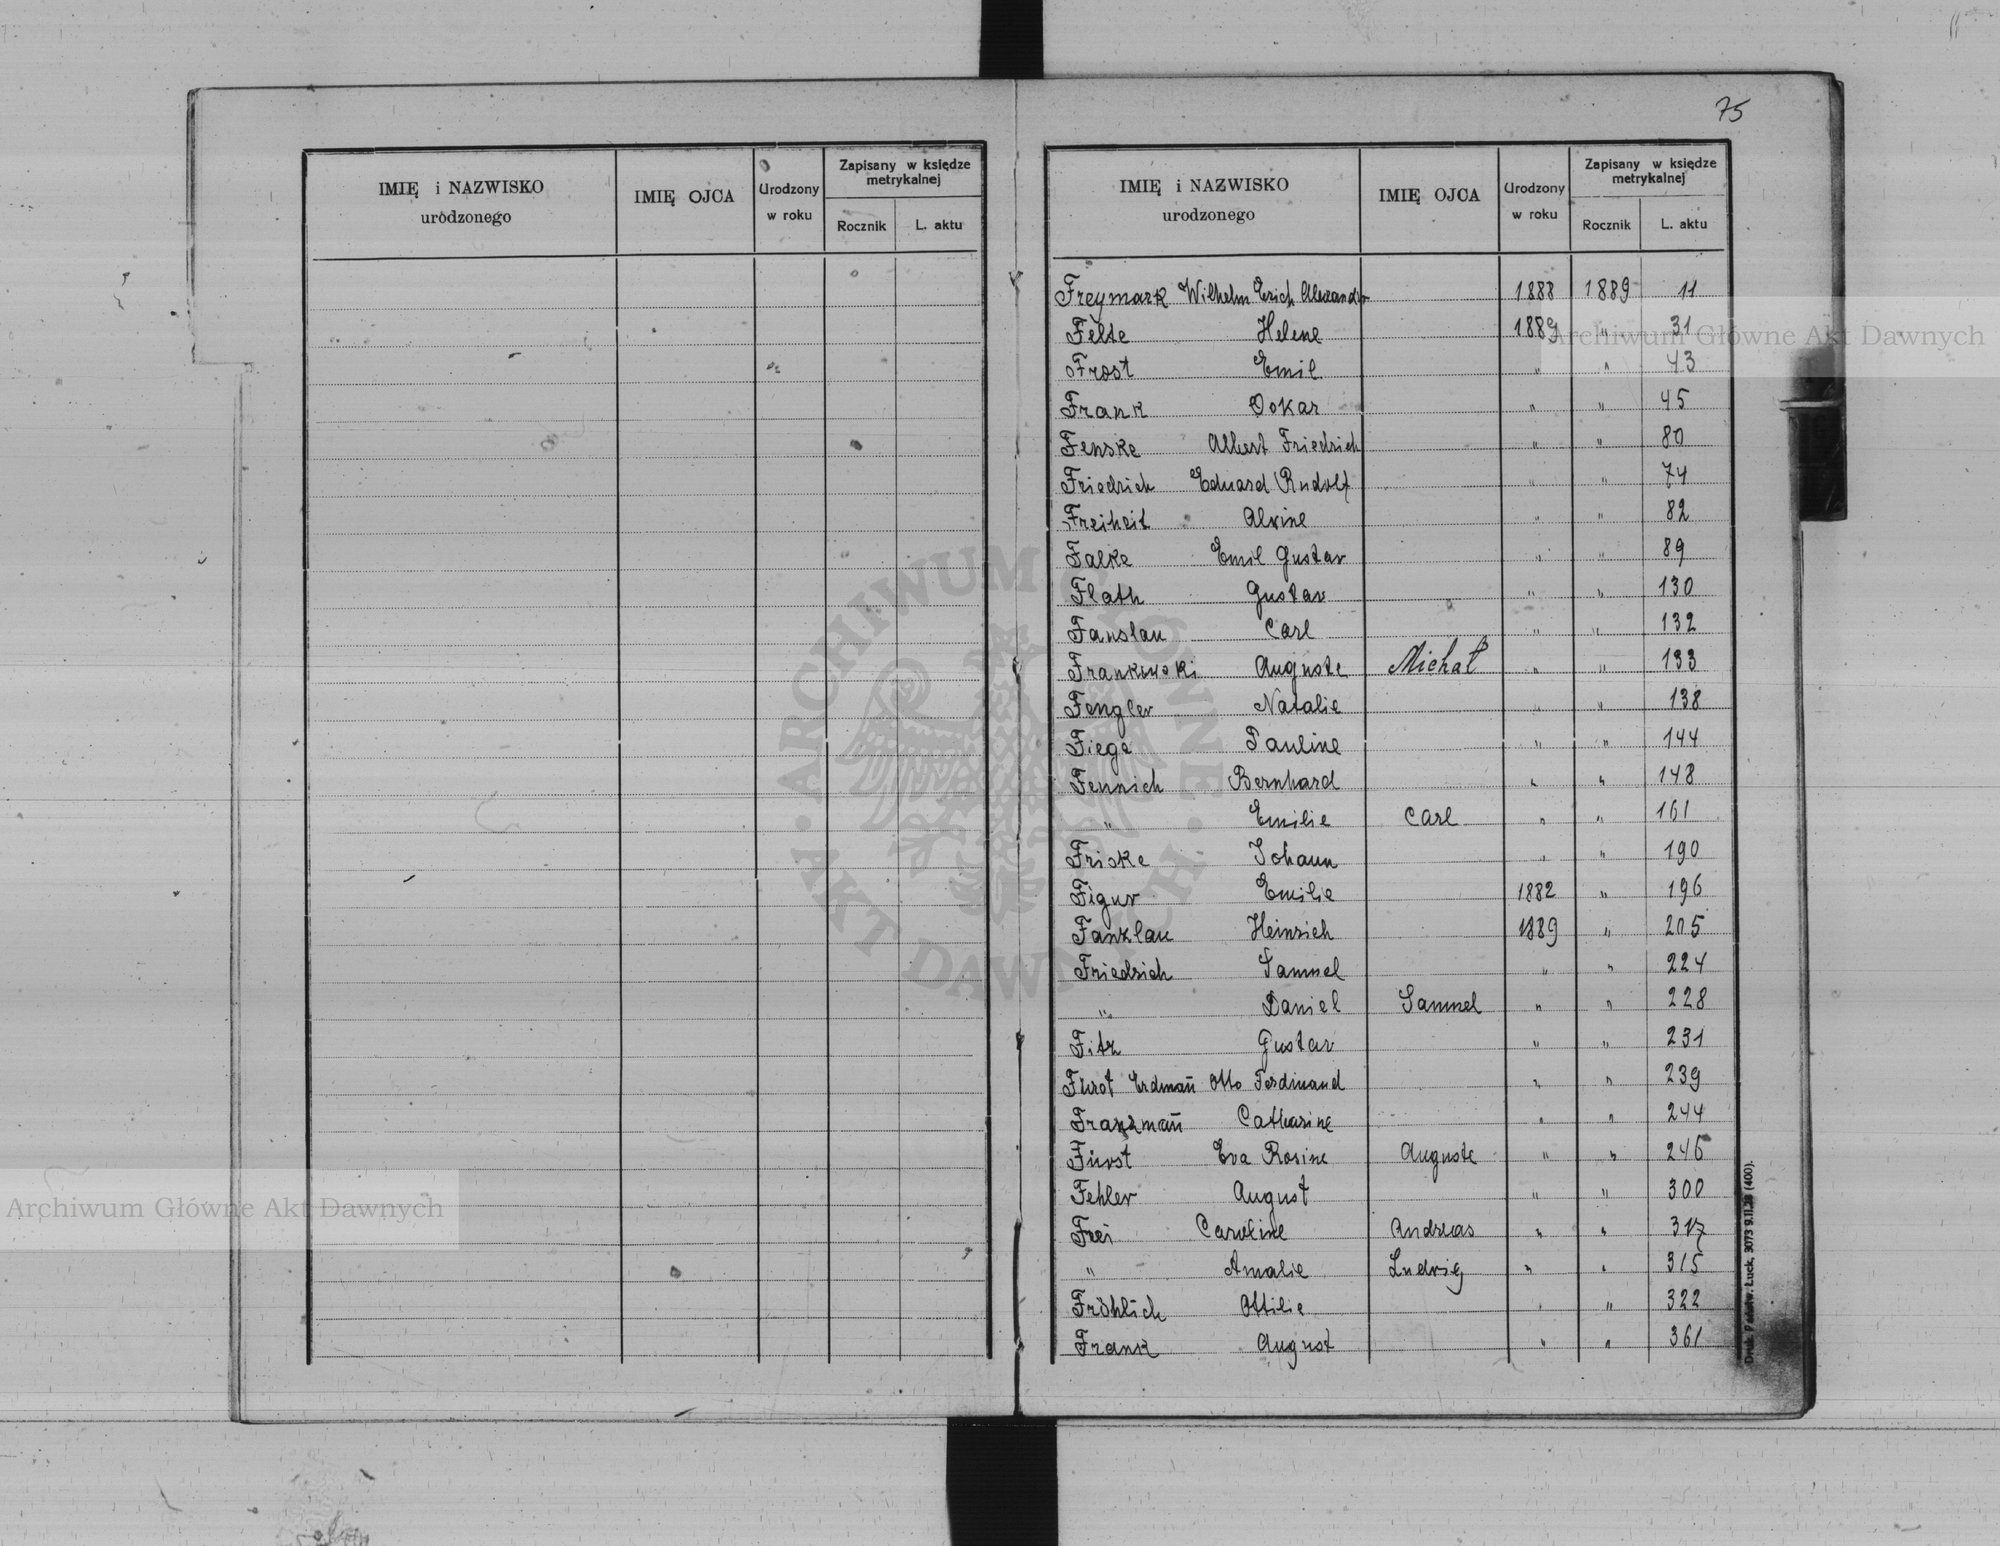 75
IMIĘ i NAZWISKO urodzonego | IMIĘ OJCA | Urodzony w roku | Zapisany w księdze metrykalnej | Rocznik | L. aktu
IMIĘ i NAZWISKO urodzonego | IMIĘ OJCA | Urodzony w roku | Zapisany w księdze metrykalnej | Rocznik | L. aktu
Freymark Wilhelm Erich Alexander 1888 1889 11
Felse Helene 1889 " 31
Frost Emil " " 43
Frank Oskar " " 45
Fenske Albert Friedrich " " 80
Friedrich Eduard Rudolf " " 74
Freiheit Alvine " " 82
Falke Emil Gustav " " 89
Flath Gustav " " 130
Fanslau Carl " " 132
Frankowski Auguste Michał " " 133
Fengler Natalie " " 138
Fiege Pauline " " 144
Fennich Bernhard " " 148
" Emilie Carl " " 161
Friske Johann " " 190
Figur Emilie 1882 " 196
Fanzlau Heinrich 1889 " 205
Friedrich Samuel " " 224
" Daniel Samuel " " 228
Fitz Gustav " " 231
Fürst Erdmañ Otto Ferdinand " " 239
Franzmañ Catharine " " 244
Fürst Eva Rosine Auguste " " 246
Fehler August " " 300
Frei Caroline Andreas " " 317
" Amalie Ludwig " " 315
Fröhlich Ottilie " " 322
Frank August " " 361
Druk. Państw. Łuck, 3073 9.11.28 (400).
Archiwum Główne Akt Dawnych
ARCHIWUM GŁÓWNE · AKT DAWNYCH ·
Archiwum Główne Akt Dawnych